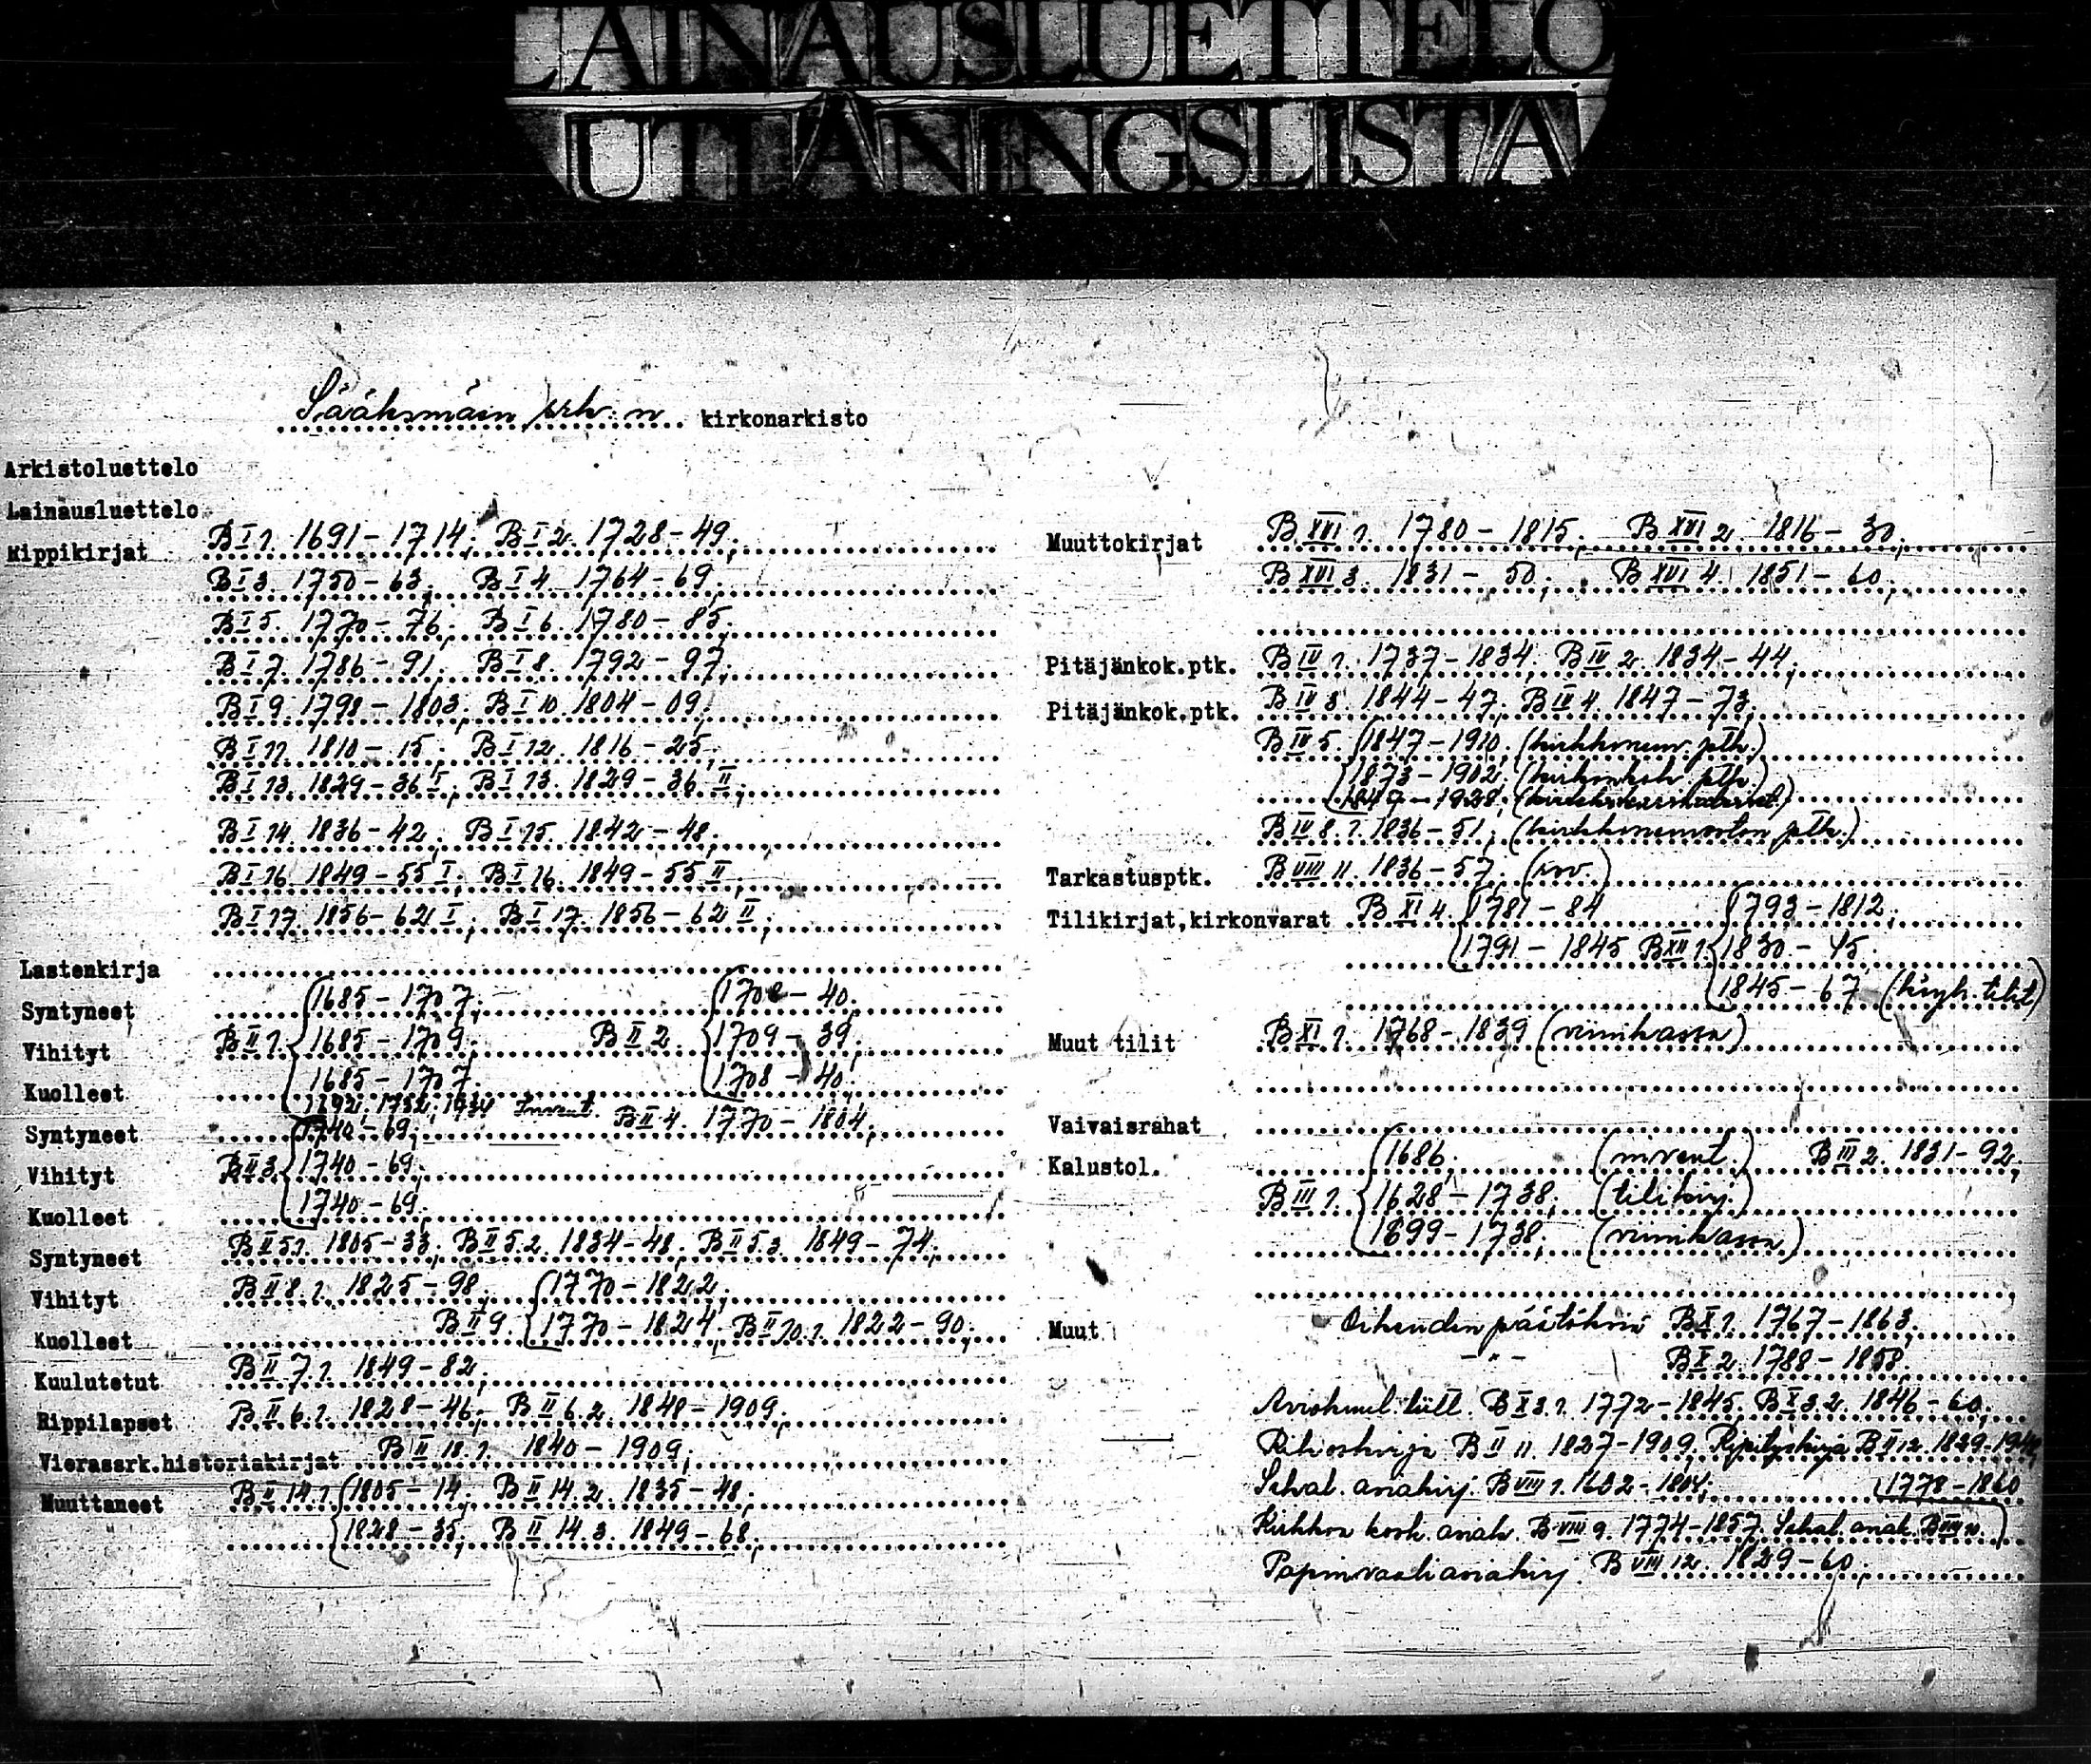 LAINAUSLUETTELO
UTLÅNINGSLISTA
Sääksmäen srk:n kirkonarkisto
Arkistoluettelo
Lainausluettelo
Rippikirjat B I 1. 1691-1714; B I 2. 1728-49;
B I 3. 1750-63; B I 4. 1764-69;
B I 5. 1770-76; B I 6. 1780-85;
B I 7. 1786-91; B I 8. 1792-97;
B I 9. 1798-1803; B I 10. 1804-09;
B I 11. 1810-15; B I 12. 1816-25;
B I 13. 1829-36 I; B I 13. 1829-36 II;
B I 14. 1836-42; B I 15. 1842-48;
B I 16. 1849-55 I; B I 16. 1849-55 II;
B I 17. 1856-62 I; B I 17. 1856-62 II;
Lastenkirja
Syntyneet 1685-1707; 1708-40;
Vihityt B II 1. 1685-1709; B II 2. 1709-39;
Kuolleet 1685-1707; 1708-40;
1692, 1752, Invent.
Syntyneet 1740-69; B II 4. 1770-1804;
Vihityt B II 3. 1740-69;
Kuolleet 1740-69;
Syntyneet B II 5.1. 1805-33; B II 5.2. 1834-48; B II 5.3. 1849-74;
Vihityt B II 8.1. 1825-98; 1770-1822;
Kuolleet B II 9. 1770-1824; B II 10.1. 1822-90;
Kuulutetut B II 7.1. 1849-82;
Rippilapset B II 6.1. 1828-46; B II 6.2. 1848-1909;
Vierassrk.historiakirjat B II 18.1. 1840-1909;
Muuttaneet B II 14.1. 1805-14; B II 14.2. 1835-48;
1828-35; B II 14.3. 1849-68;
Muuttokirjat B XVI 1. 1780-1815; B XVI 2. 1816-30;
B XVI 3. 1831-50; B XVI 4. 1851-60;
Pitäjänkok.ptk. B IV 1. 1737-1834; B IV 2. 1834-44;
Pitäjänkok.ptk. B IV 3. 1844-47; B IV 4. 1847-73;
B IV 5. 1847-1910; (kirkkoneuv. ptk.)
1873-1902; (kirkonkok. ptk.)
1847-1928;
B IV 8.1. 1836-51; (kirkkoneuvoston ptk.)
Tarkastusptk. B VIII 11. 1836-57;
Tilikirjat,kirkonvarat B XI 4. 1781-84 1793-1812;
1791-1845 B XII 1. 1830-45;
1845-67
Muut tilit B XI 1. 1768-1839 (viinikassa)
Vaivaisrahat
Kalustol. 1686; (invent.) B III 2. 1831-92;
B III 1. 1628-1738; (tilikirj.)
1699-1738; (viinikassa)
Muut Oikeuden päätöksiä B X 1. 1767-1863;
-"- B X 2. 1788-1858;
Aviokuul. luett. B X 3.1. 1772-1845; B X 3.2. 1846-60;
Rikoskirja B II 11. 1827-1909; Ripityskirja B II 12. 1829-1942;
Sekal. asiakirj. B VIII 1. 1602-1804; 1778-1860
Kirkkoa kosk. asiak. B VIII 9. 1774-1857. Sekal. asiak.
Papinvaaliasiakirj. B VIII 12. 1829-60;